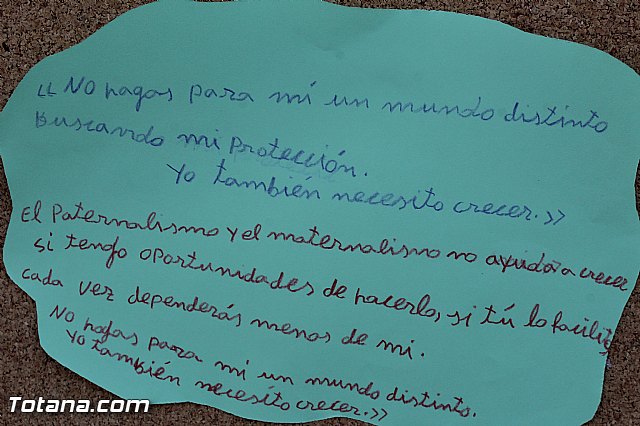 «No hagas para mí un mundo distinto
Buscando mi Protección.
Yo también necesito crecer.»
El Paternalismo y el maternalismo no ayuda a crecer
si tengo oportunidades de hacerlo, si tú lo facilitas,
cada vez dependerás menos de mi.
No hagas para mi un mundo distinto.
Yo también necesito crecer.»
Totana.com